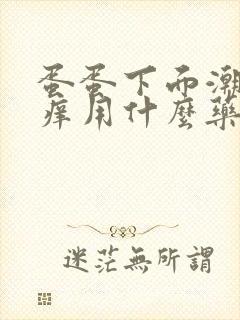 蛋蛋下面潮
痒用什麼藥
迷茫無所謂